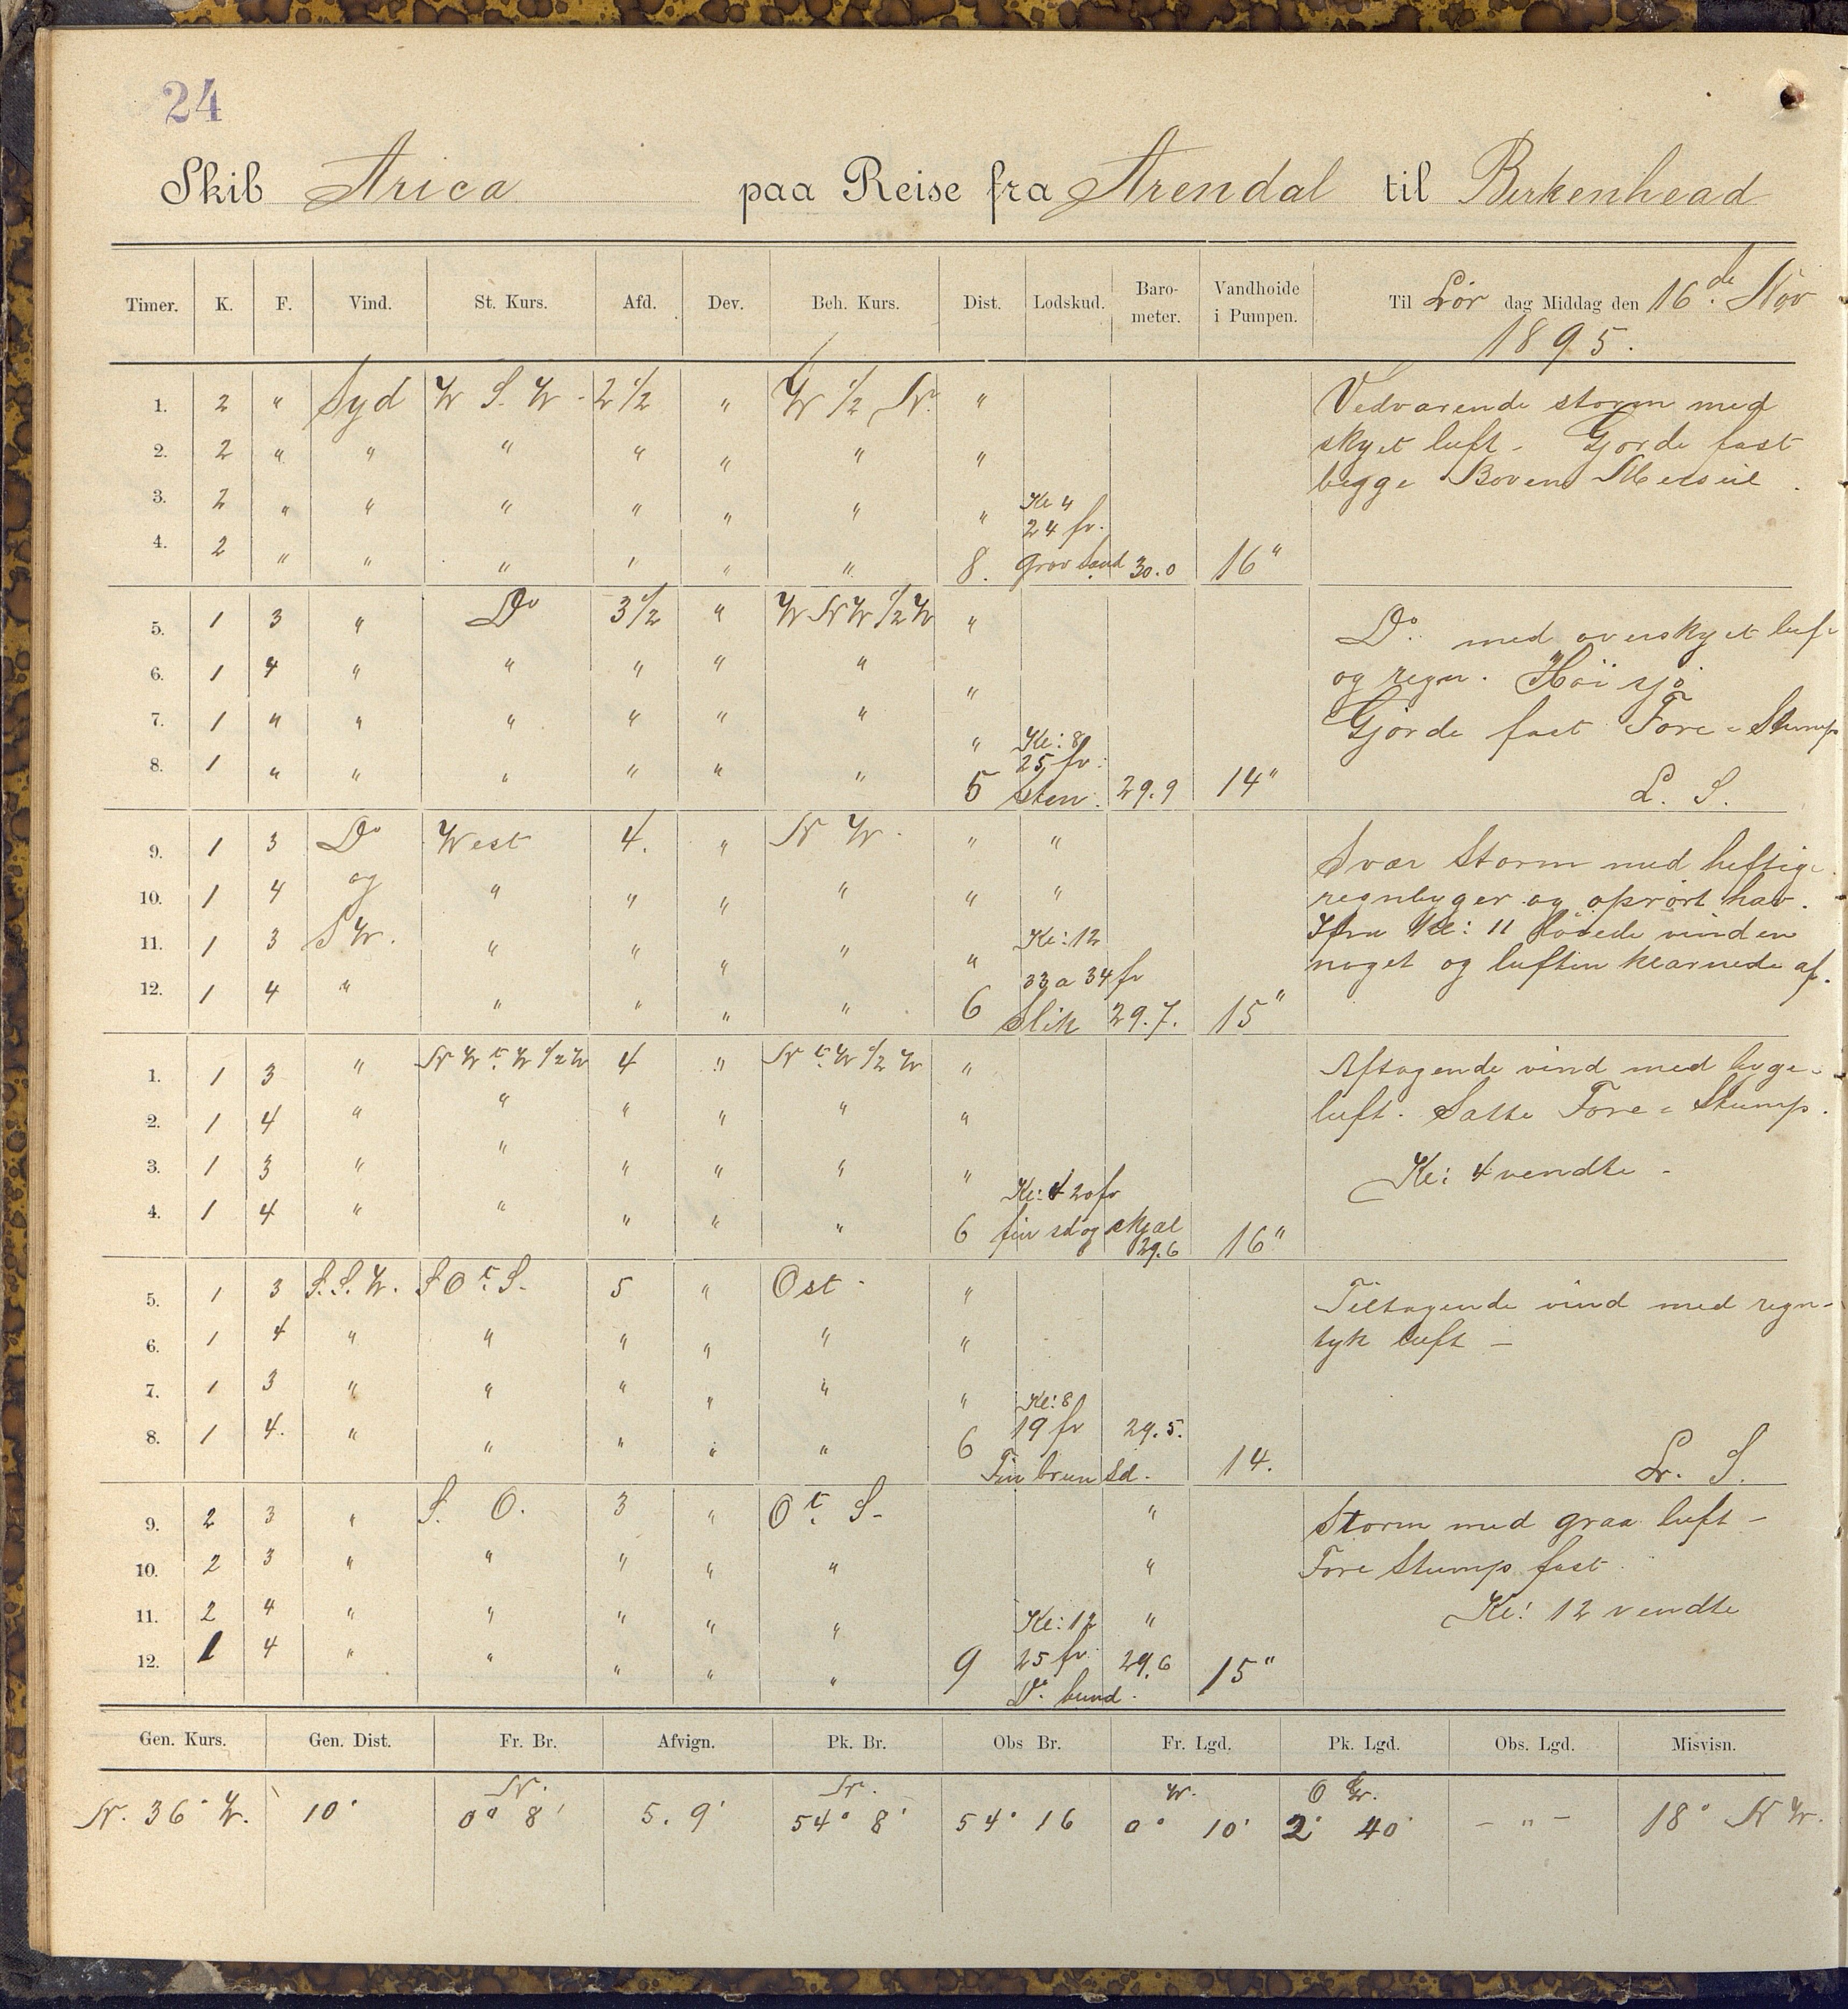 24
Skib Arica paa Reise fra Arendal til Birkenhead
Timer. K. F. Vind. St. Kurs. Afd. Dev. Beh. Kurs. Dist. Lodskud. Baro- meter. Vandhoide i Pumpen. Til Lör dag Middag den 16de Nov
1895.
1. 2 " Syd W S. W - 2 1/2 " W 1/2 N. " Vedvarende storm med
2. 2 " " " " " " " skyet luft - Gjorde fast
3. 2 " " " " " " " Kl 4 begge Boven Merseil.
24 fv.
4. 2 " " " " " " 8. grov Sand 30.0 16"
5. 1 3 " Do 3 1/2 " W N W 1/2 W " Do. med overskyet luft
6. 1 4 " " " " " " og regn. Höi sjö
7. 1 " " " " " " " Kl: 8 Gjorde fast Fore = Stump
25 fv.
8. 1 " " " " " " 5 Sten. 29.9 14" L. S.
9. 1 3 Do West 4. " N W. " " Svær Storm med heftige
10. 1 4 og " " " " " " regnbyger og oprört hav.
11. 1 3 SW. " " " " " Kl: 12 Ifra Kl: 11 löiede vinden
33 a 34 fv noget og luften klarnede af.
12. 1 4 " " " " " 6 Slik 29.7. 15"
1. 1 3 " N W t. W 1/2 W 4 " N t. W 1/2 W " Aftagende vind med byge-
2. 1 4 " " " " " " luft. Satte Fore = Stump.
3. 1 3 " " " " " " Kl: 4 20 fv Kl: 4 vendte -
4. 1 4 " " " " " 6 fin sd og skjæl
29.6 16"
5. 1 3 S. S. W. S O t. S. 5 " Ost - " Tiltagende vind med regn-
6. 1 4 " " " " " " tyk luft -
7. 1 3 " " " " " " Kl: 8
8. 1 4. " " " " " 6 19 fv 29.5.
Fin brun Sd. 14. L. S.
9. 2 3 " S. O. 3 " O t. S - " Storm med graa luft -
10. 2 3 " " " " " " Fore Stump fast
11. 2 4 " " " " " Kl: 12 " Kl: 12 vendte
12. 1 4 " " " " " 9 25 fv. 29.6 15"
Do. bund.
Gen. Kurs. Gen. Dist. Fr. Br. Afvign. Pk. Br. Obs Br. Fr. Lgd. Pk. Lgd. Obs. Lgd. Misvisn.
N. N. W. O Gr.
N. 36° W. 10' 0° 8' 5. 9' 54° 8' 54° 16 0° 10' 2° 40' - " - 18° N W.